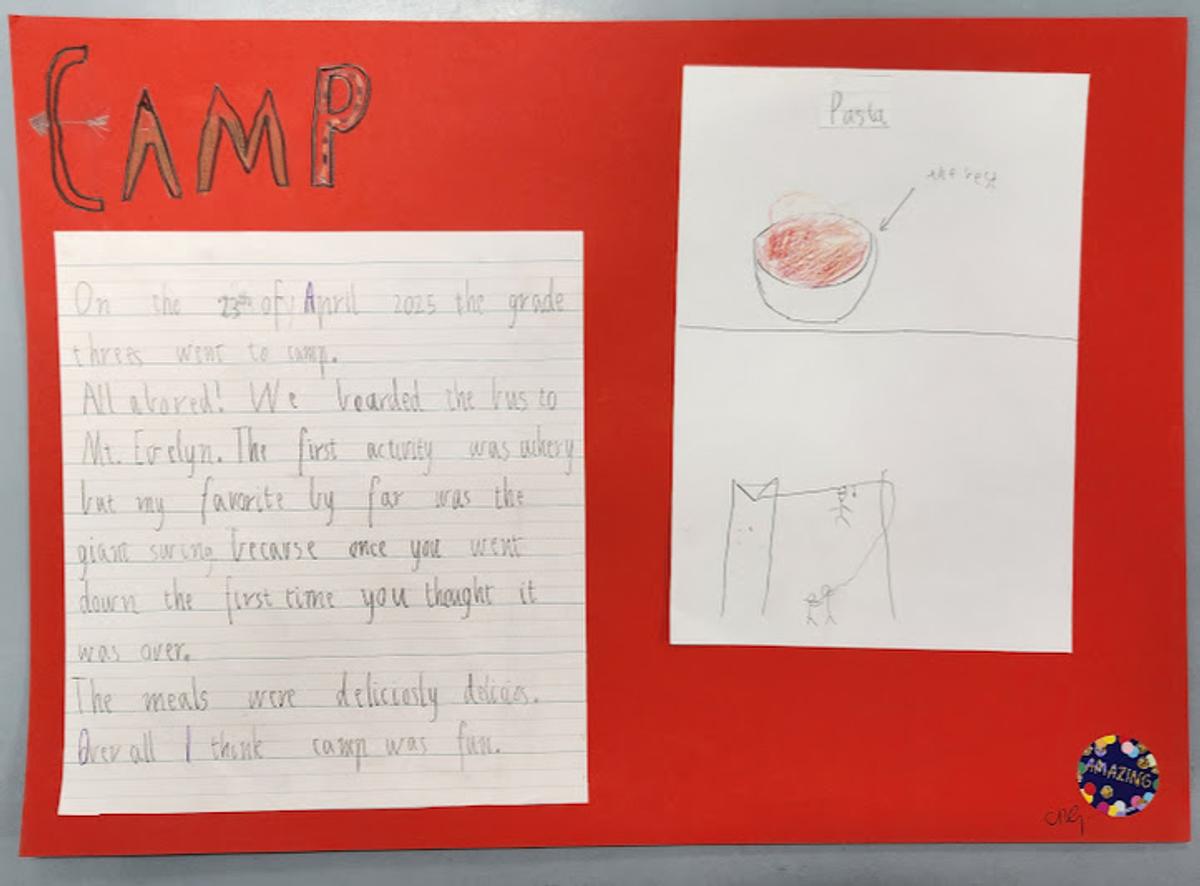 CAMP
On the 23th of April 2025 the grade
threes went to camp.
All abored! We boarded the bus to
Mt. Evelyn. The first activity was achery
but my favorite by far was the
giant swing because once you went
down the first time you thought it
was over.
The meals were deliciosly delicios.
Over all I think camp was fun.
Pasta
the best
AMAZING